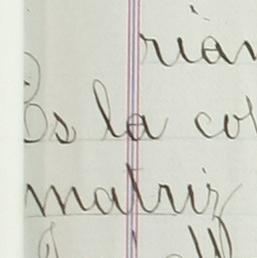 rian
Es la co
matriz